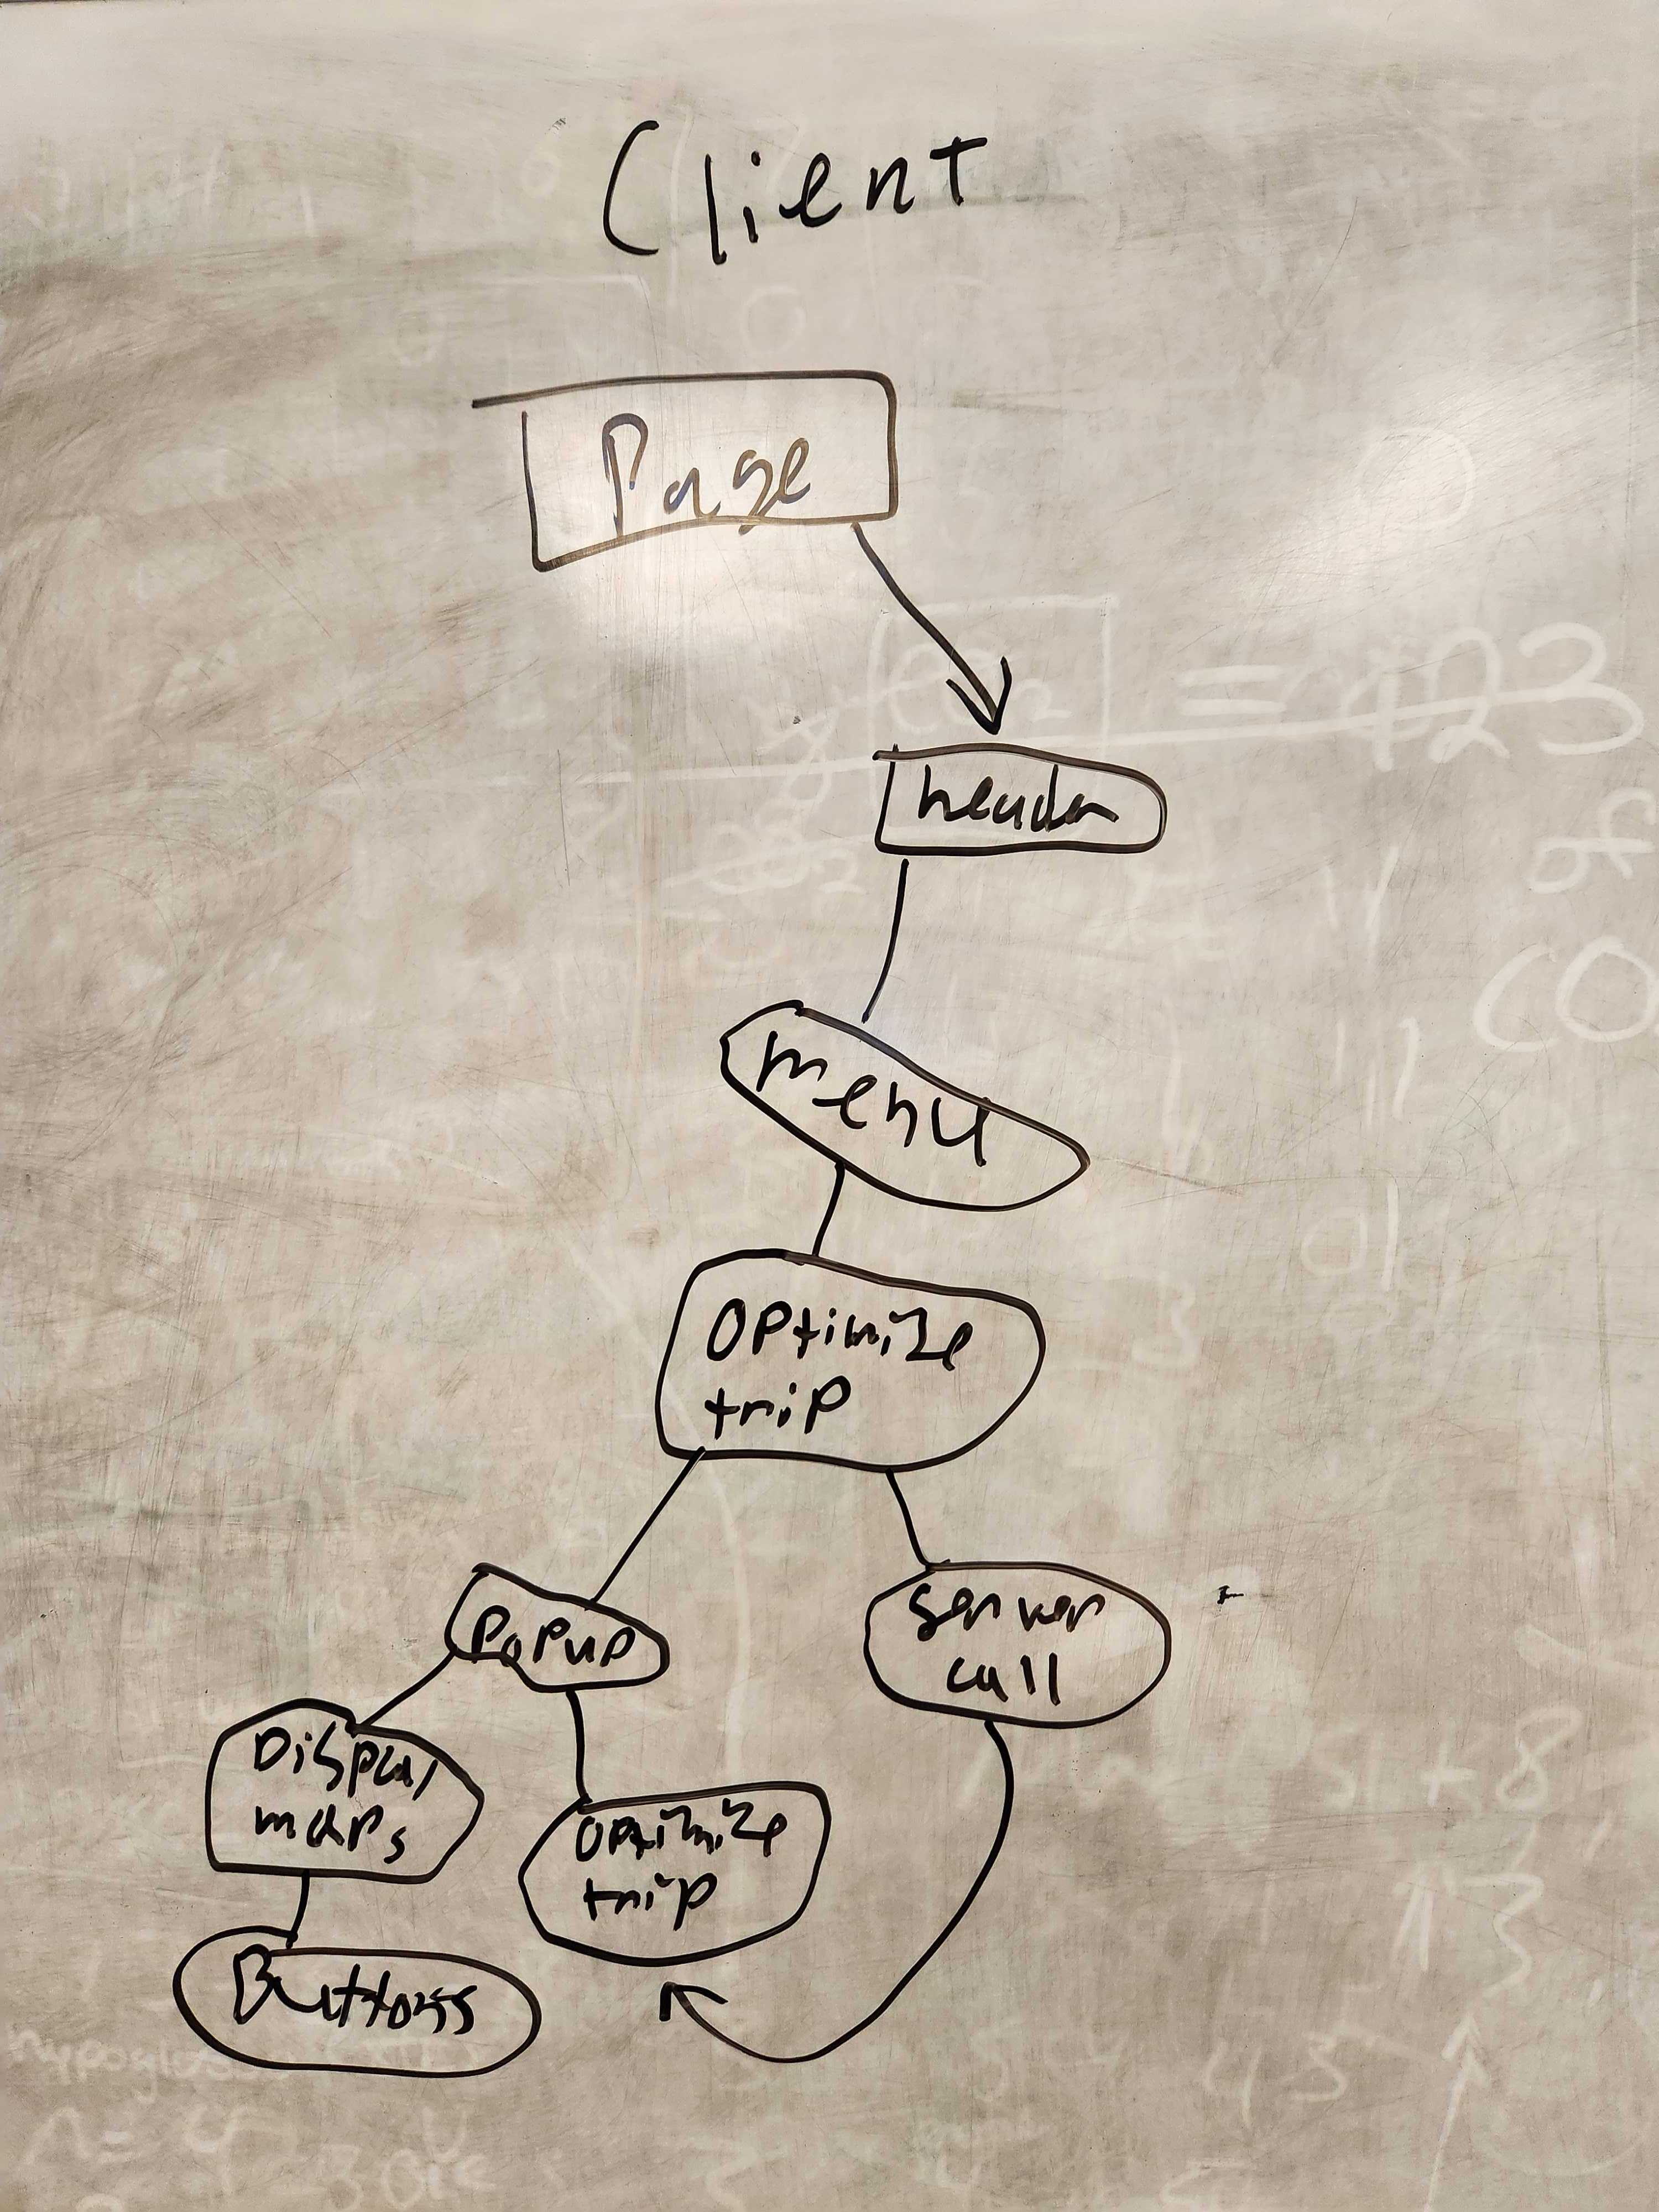 Client
Page
header
menu
Optimize
trip
Popup
server
call
Display
maps
Optimize
trip
Buttons
= 423
of
CO